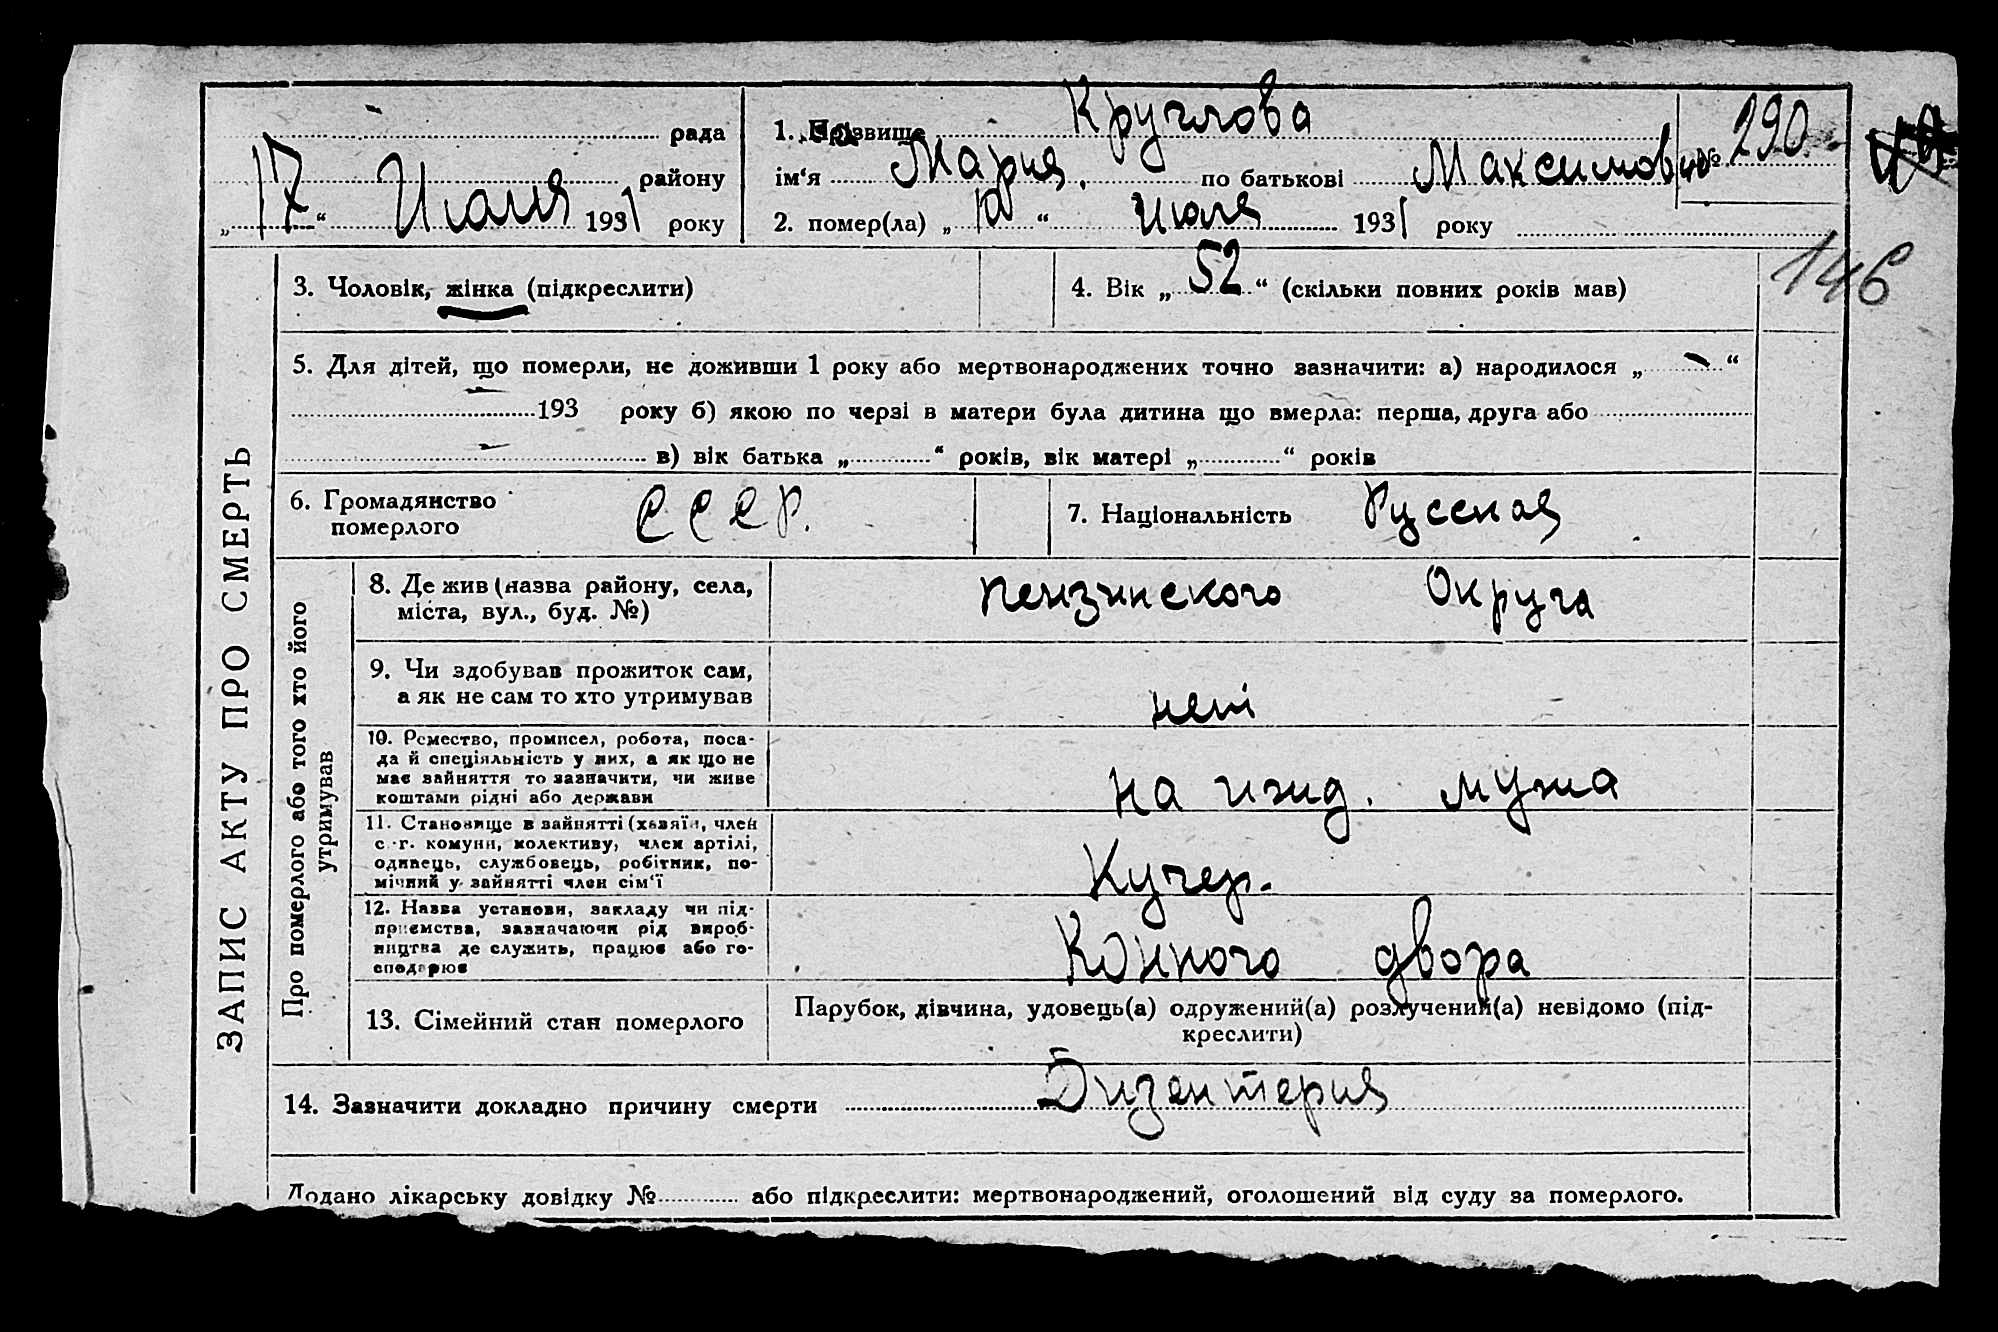 рада
1. Прізвище Круглова
№ 290
району
ім‘я Мария. по батькові Максимовно
„17“ Июля 1931 року
2. помер(ла) „ “ Июля 1931 року
146
ЗАПИС АКТУ ПРО СМЕРТЬ
3. Чоловік, жінка (підкреслити)
4. Вік „52“ (скільки повних років мав)
5. Для дітей, що померли, не доживши 1 року або мертвонароджених точно зазначити: а) народилося „ “
193 року б) якою по черзі в матери була дитина що вмерла: перша, друга або
в) вік батька „ “ років, вік матері „ “ років
6. Громадянство
померлого
СССР.
7. Національність Русская
Про померлого або того хто його
утримував
8. Де жив (назва району, села,
міста, вул., буд. №)
пензинского Округа
9. Чи здобував прожиток сам,
а як не сам то хто утримував
нет
10. Ремество, промисел, робота, поса-
да й спеціяльність у них, а як що не
має зайняття то зазначити, чи живе
коштами рідні або держави
на ижд. мужа
11. Становище в зайнятті (хазяїн, член
с.-г. комуни, колективу, член артілі,
одинець, службовець, робітник, по-
мічний у зайнятті член сім‘ї
Кучер.
12. Назва установи, закладу чи під-
приємства, зазначаючи рід вироб-
ництва де служить, працює або го-
сподарює
Конного двора
13. Сімейний стан померлого
Парубок, дівчина, удовець(а) одружений(а) розлучений(а) невідомо (під-
креслити)
14. Зазначити докладно причину смерти Дизентерия
Додано лікарську довідку № або підкреслити: мертвонароджений, оголошений від суду за померлого.